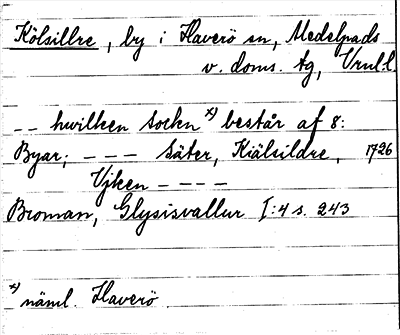 Kölsillre, by i Haverö sn, Medelpads
v. doms. tg, Vrnl.l.
-- hwilken Sockn x) består af 8:
Byar; --- Säter, Kiälsildre, 1726
Vjken ----
Broman, Glysisvallur I:4 s. 243
x) näml. Haverö